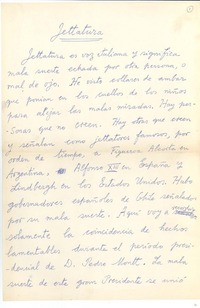 1
Jettatura
Jettatura es voz italiana y significa
mala suerte echada por otra persona, o
mal de ojo. He visto collares de ambar
que ponían en los cuellos de los niños
para alejar las malas miradas. Hay per-
sonas que no creen. Hay otras que creen
y señalan como jettatores famosos, por
orden de tiempo, a Figueroa Alcorta en
Argentina, Alfonso XIII en España y
Lindbergh en los Estados Unidos. Hubo
gobernadores españoles de Chile señalados
por su mala suerte. Aquí voy a
solamente la coincidencia de hechos
lamentables durante el período presi-
dencial de D. Pedro Montt. La mala
suerte de este gran Presidente se unió